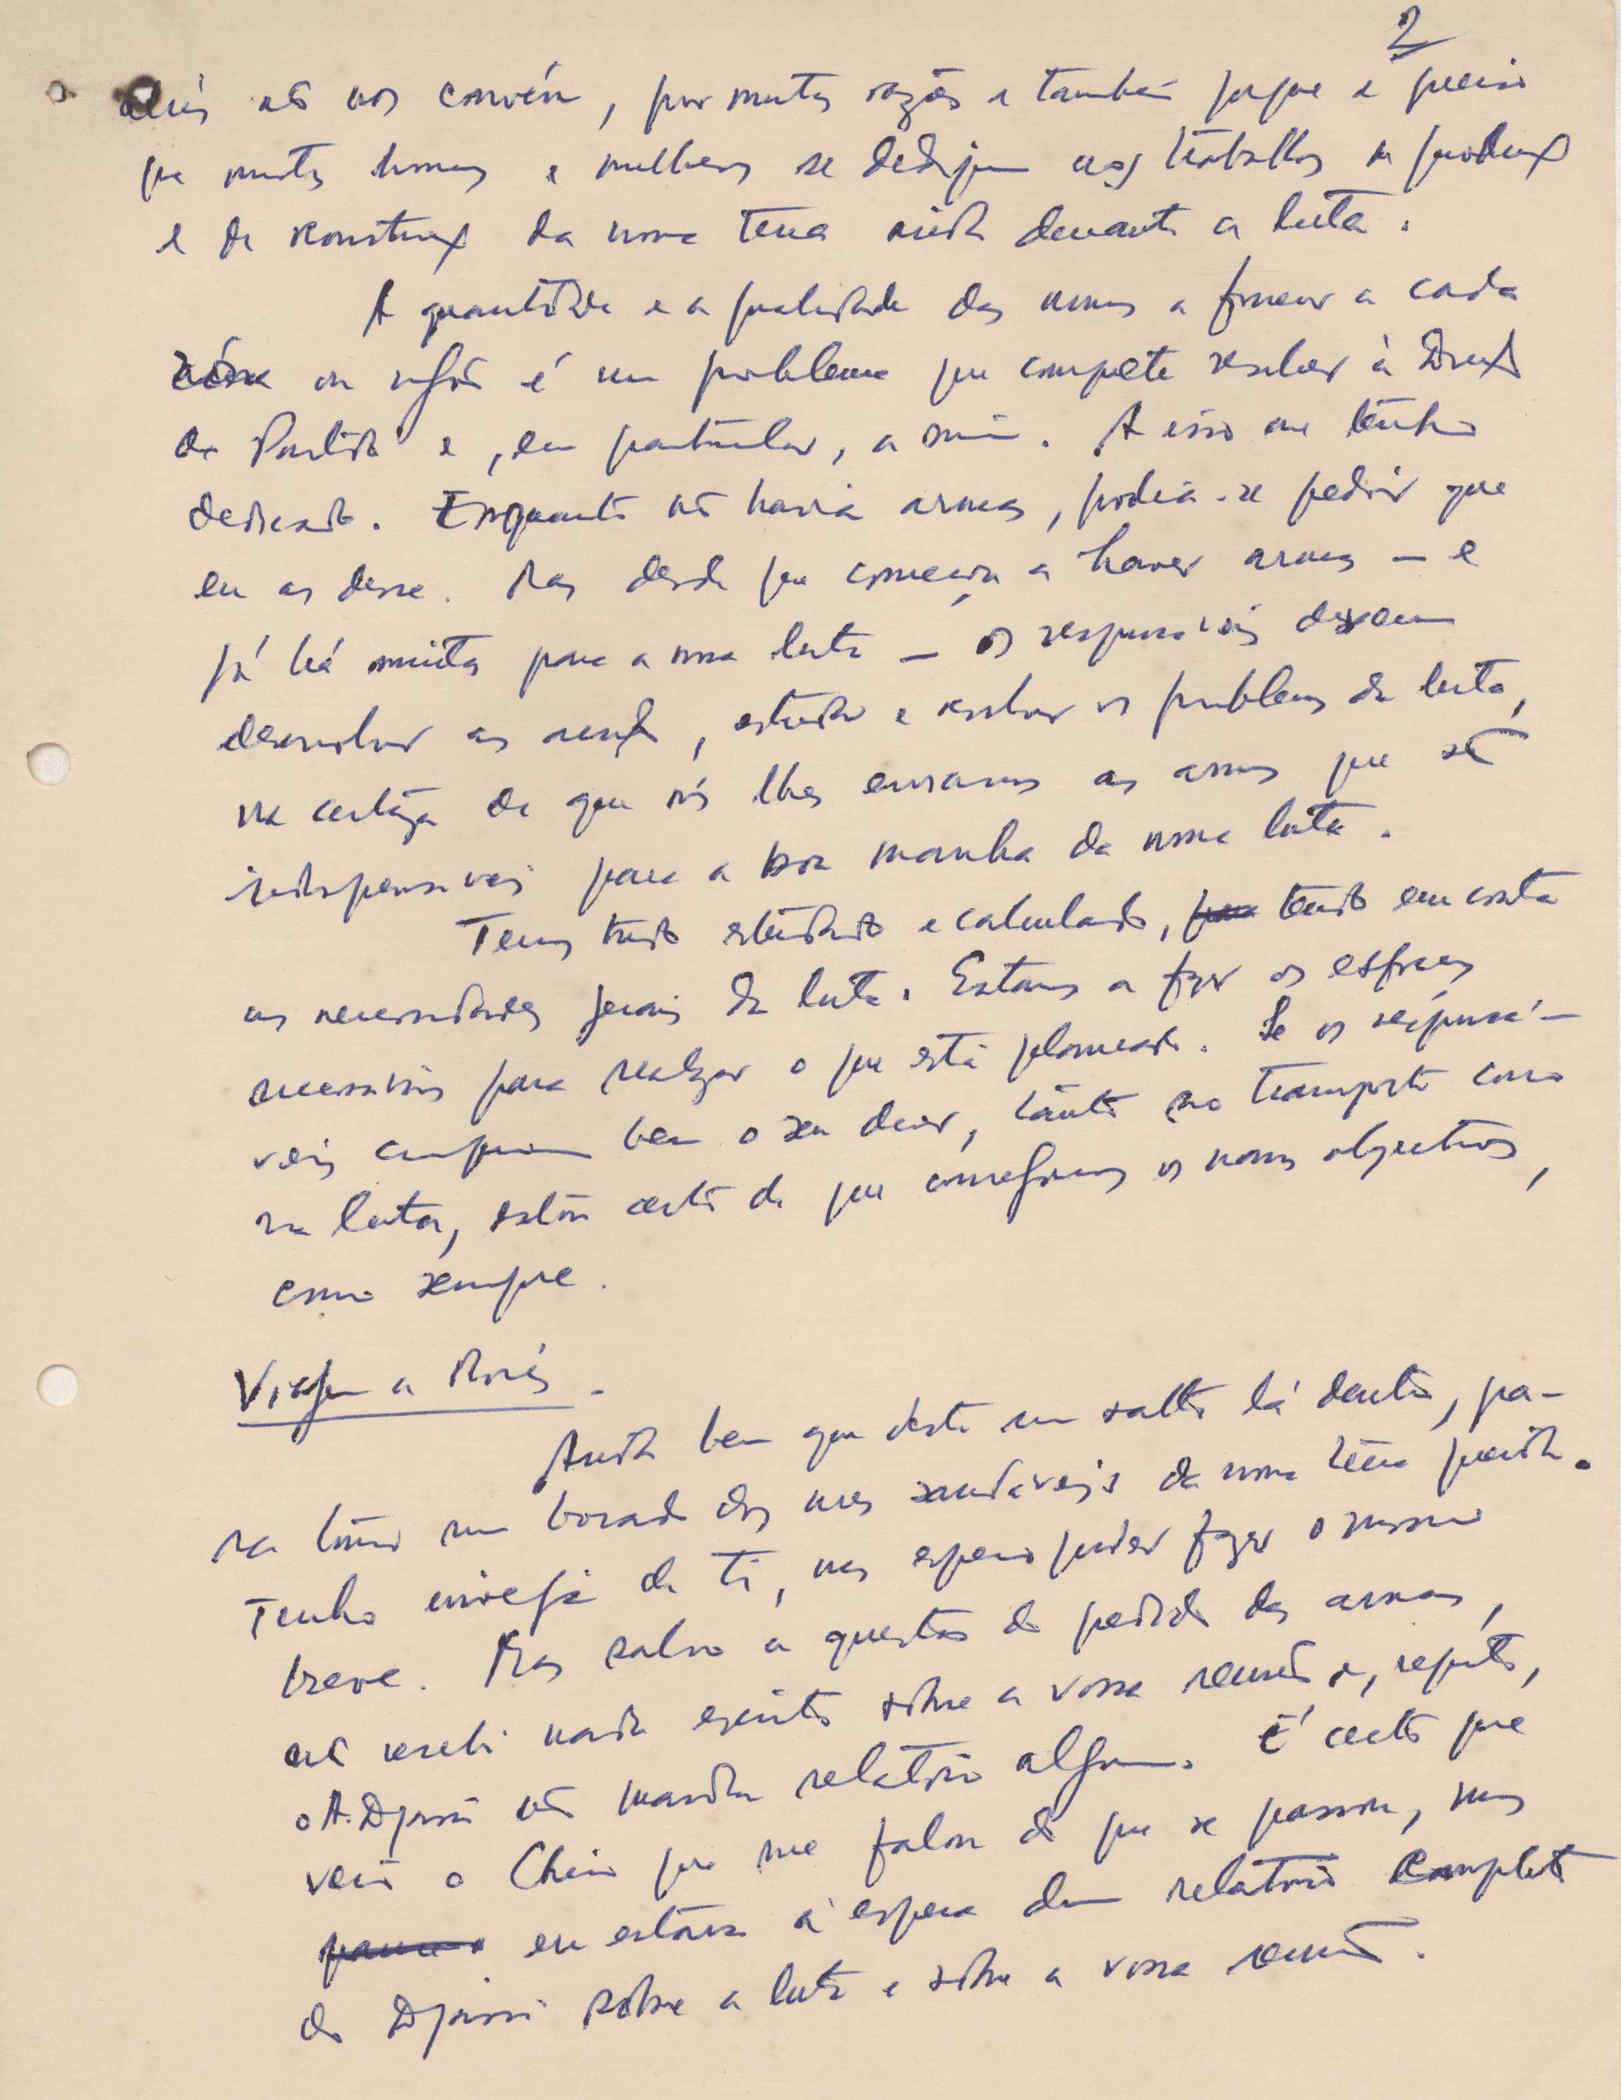 2
aliás não nos convém, por muitas razões e também porque é preciso
que muitos homens e mulheres se dediquem aos trabalhos de produção
e de reconstrução da nossa terra ainda durante a luta.
A quantidade e a qualidade das armas a fornecer a cada
zona ou região é um problema que compete resolver à Direcção
do Partido e, em particular, a mim. A isso me tenho
dedicado. Enquanto não havia armas, podia-se pedir que
eu as desse. Mas desde que começou a haver armas — e
já há muitas para a nossa luta — os responsáveis devem
desenvolver as acções, estudar e resolver os problemas da luta,
na certeza de que nós lhes enviamos as armas que são
indispensáveis para a boa marcha da nossa luta.
Temos tudo estudado e calculado, tendo em conta
as necessidades gerais da luta. Estamos a fazer os esforços
necessários para realizar o que está planeado. Se os responsá-
veis cumprirem bem o seu dever, tanto no transporte como
na luta, estou certo de que conseguiremos os nossos objectivos,
como sempre.
Viagem a Morés -
Ainda bem que deste um salto lá dentro, pa-
ra tomar um bocado dos ares saudáveis da nossa terra querida.
Tenho inveja de ti, mas espero poder fazer o mesmo
breve. Mas salvo a questão do pedido das armas,
não recebi nada escrito sobre a vossa reunião e, repito,
o A. Djassi não mandou relatório algum. É certo que
veio o Chico que me falou do que se passou, mas
eu estava à espera dum relatório completo
do Djassi sobre a luta e sobre a vossa reunião.